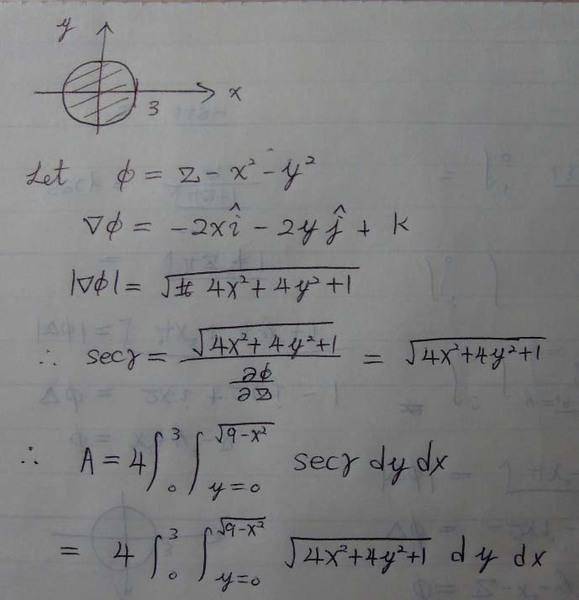 y
x
3
Let φ = z - x² - y²
∇φ = -2xî - 2yĵ + k
|∇φ| = √(4x² + 4y² + 1)
∴ secγ = √(4x² + 4y² + 1) / (∂φ/∂z) = √(4x² + 4y² + 1)
∴ A = 4 ∫₀³ ∫_{y=0}^{√(9-x²)} secγ dy dx
= 4 ∫₀³ ∫_{y=0}^{√(9-x²)} √(4x² + 4y² + 1) dy dx